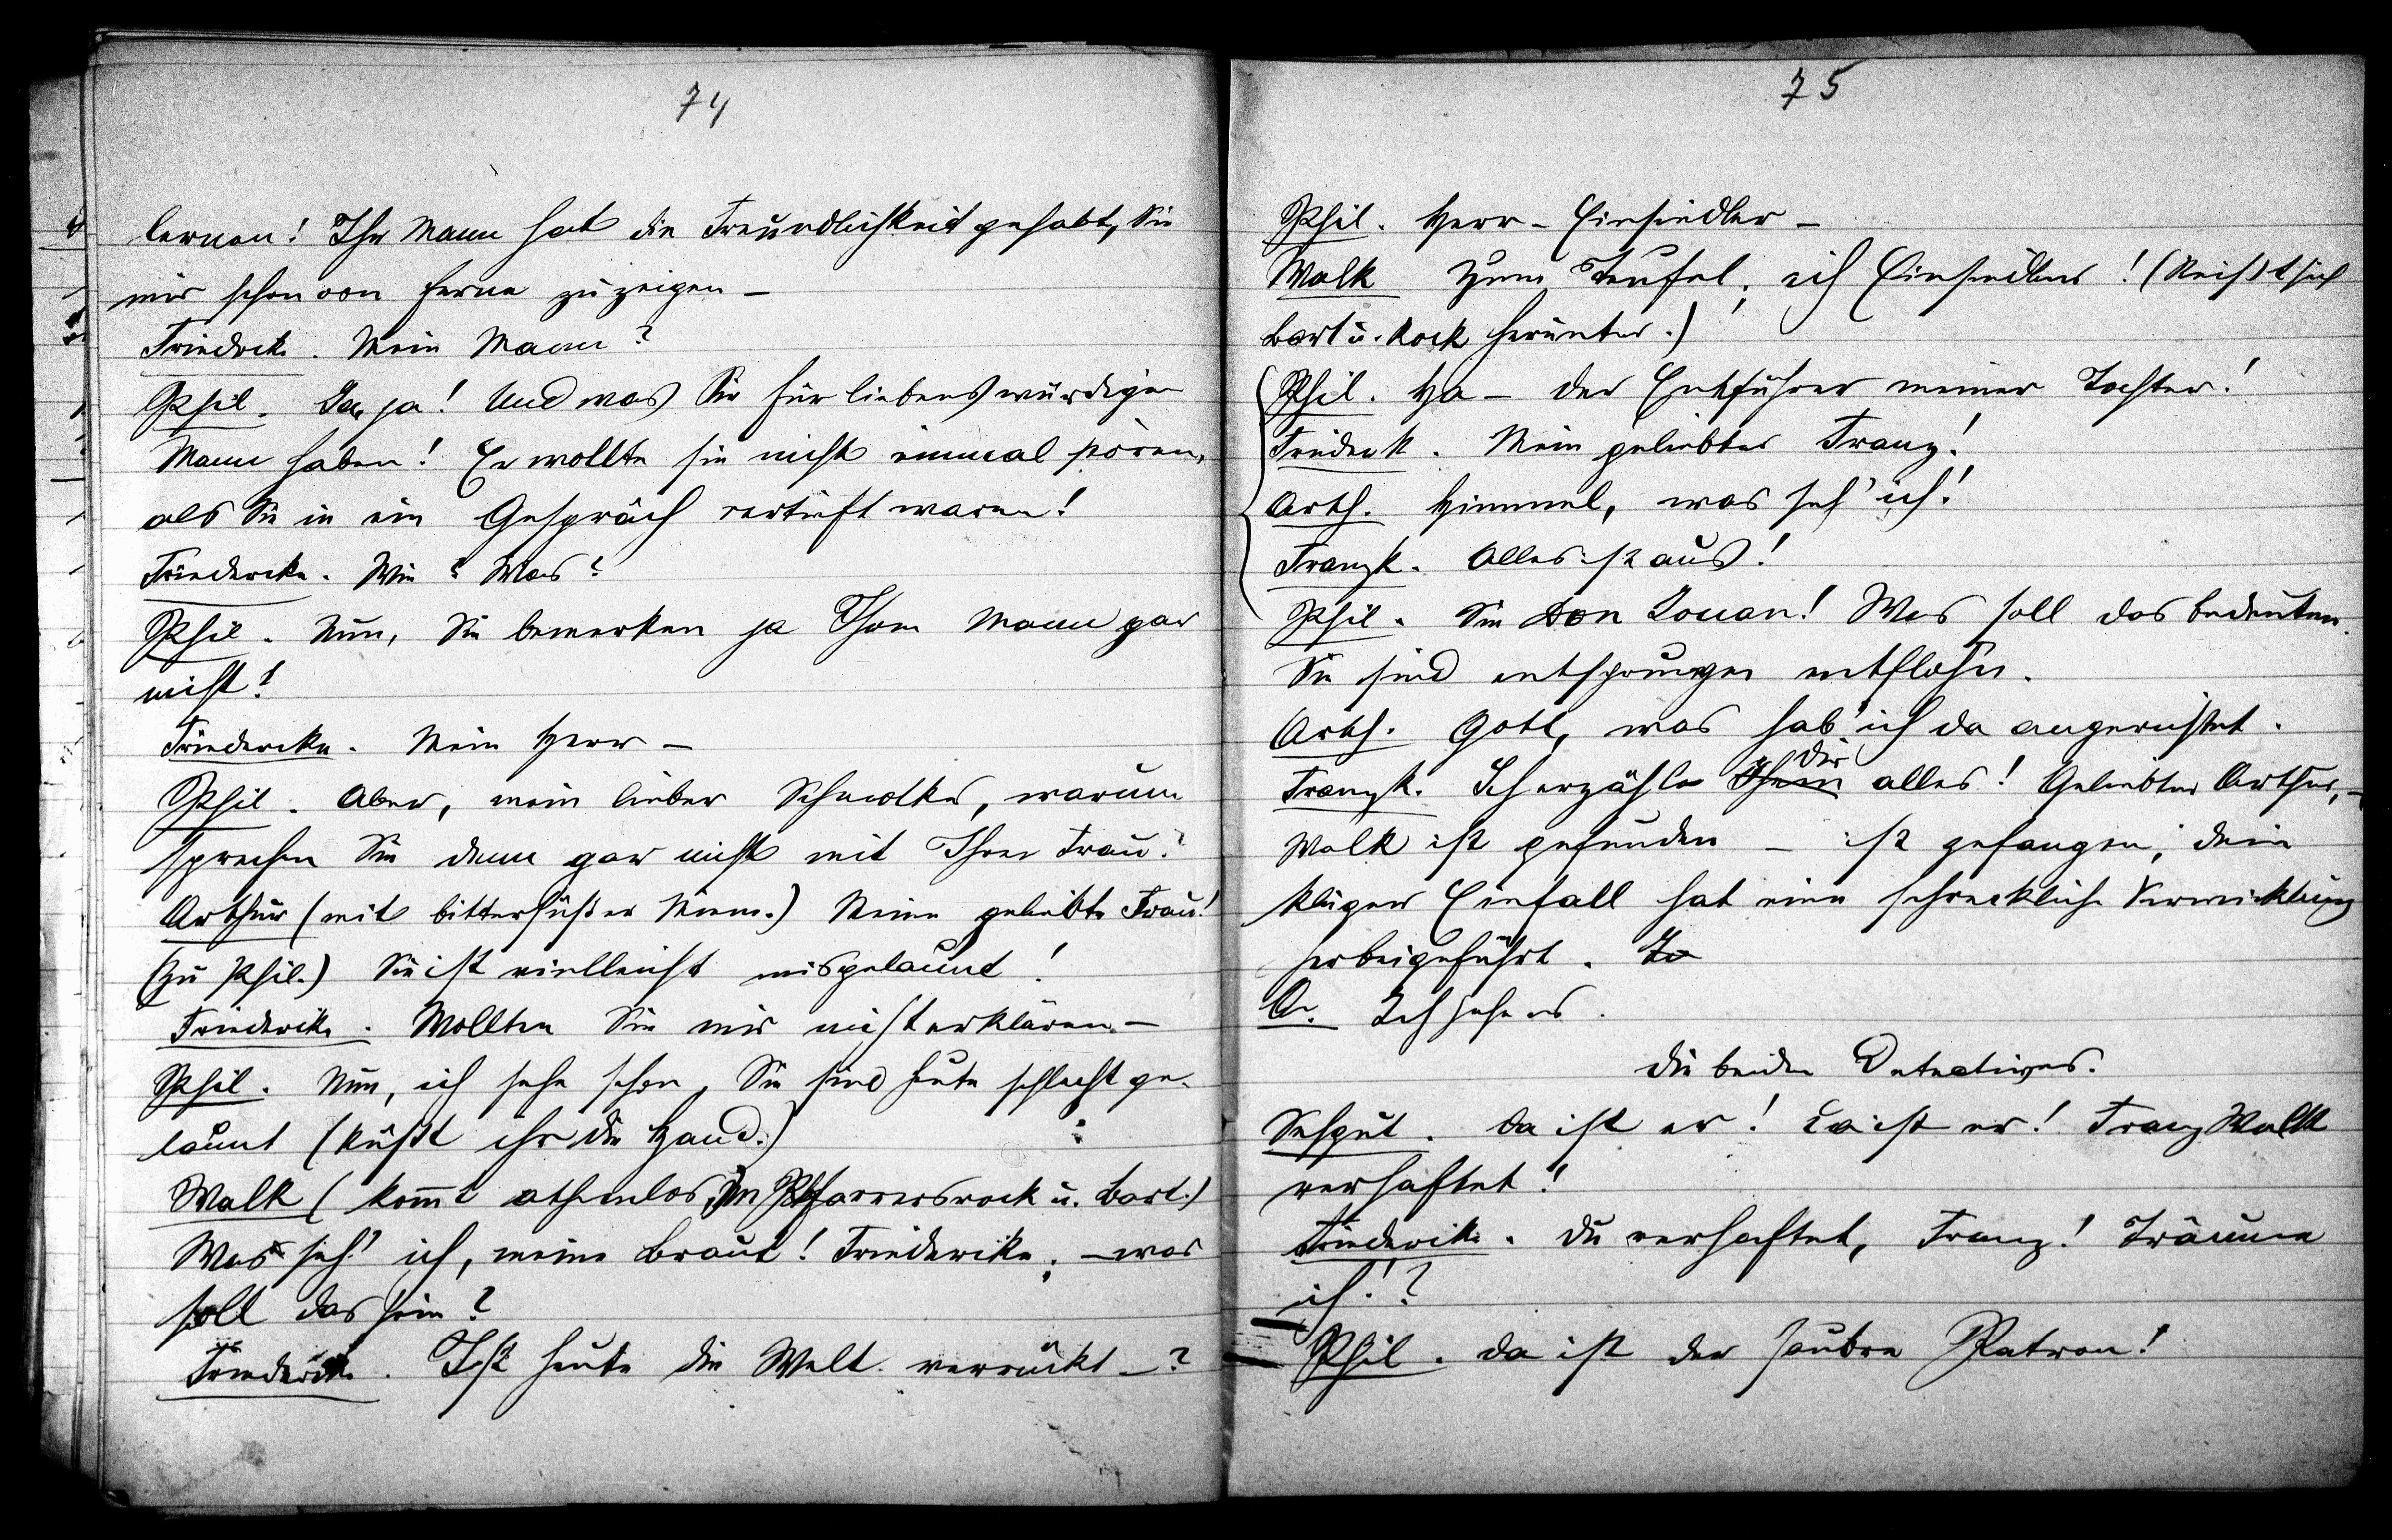 74
lernen! Ihr Mann hat die Freundlichkeit gehabt, Sie
mir schon von ferne zu zeigen –
Friederik. Mein Mann?
Phil. Ja, ja! Und was Sie für liebenswürdigen
Mann haben! Er wollte sie nicht einmal stören,
als Sie in ein Gespräch vertieft waren!
Friedericke. Wie? Was?
Phil. Nun, Sie bemerken ja Ihren Mann gar
nicht!
Friedericke. Mein Herr –
Phil. Aber, mein lieber Schmolke, warum
sprechen Sie denn gar nicht mit Ihrer Frau?
Arthur (mit bittersüßer Miene.) Meine geliebte Frau!
(zu Phil.) Sie ist vielleicht misgelaunt!
Friederike. Wollten Sie mir nicht erklären –
Phil. Nun, ich sehe schon, Sie sind heute schlecht ge-
launt (küßt ihr die Hand.)
Walk (kom̄t athemlos, im Pfarrersrock u. Bart.)
Was seh' ich, meine Braut! Friedericke; – was
soll das sein?
Friederike. Ist heute die Welt verrückt –?
75
Phil. Herr – Einsiedler –
Walk Zum Teufel; ich Einsiedler! (Reißt sich
Bart u. Rock herunter.)
Phil. Ha – der Entführer meiner Tochter!
Friederk. Mein geliebter Franz!
Arth. Himmel, was seh' ich!
Franzk. Alles ist aus!
Phil. Sie Don Jouan! Was soll das bedeuten.
Sie sind entsprungen entflohn.
Arth. Gott, was hab' ich da angerichtet.
Franzk. Ich erzähle Ihnen dir alles! Geliebter Arthur, –
Walk ist gefunden – ist gefangen; dein
kluger Einfall hat eine schreckliche Verwicklung
herbeigeführt. Ja
A. Ich sehe es.
Die beiden Detectives.
Sehgut. Da ist er! Da ist er! Franz Walk
verhaftet!
Friederike. Du verhaftet, Franz! Träume
ich!?
Phil. Da ist der saubre Patron!